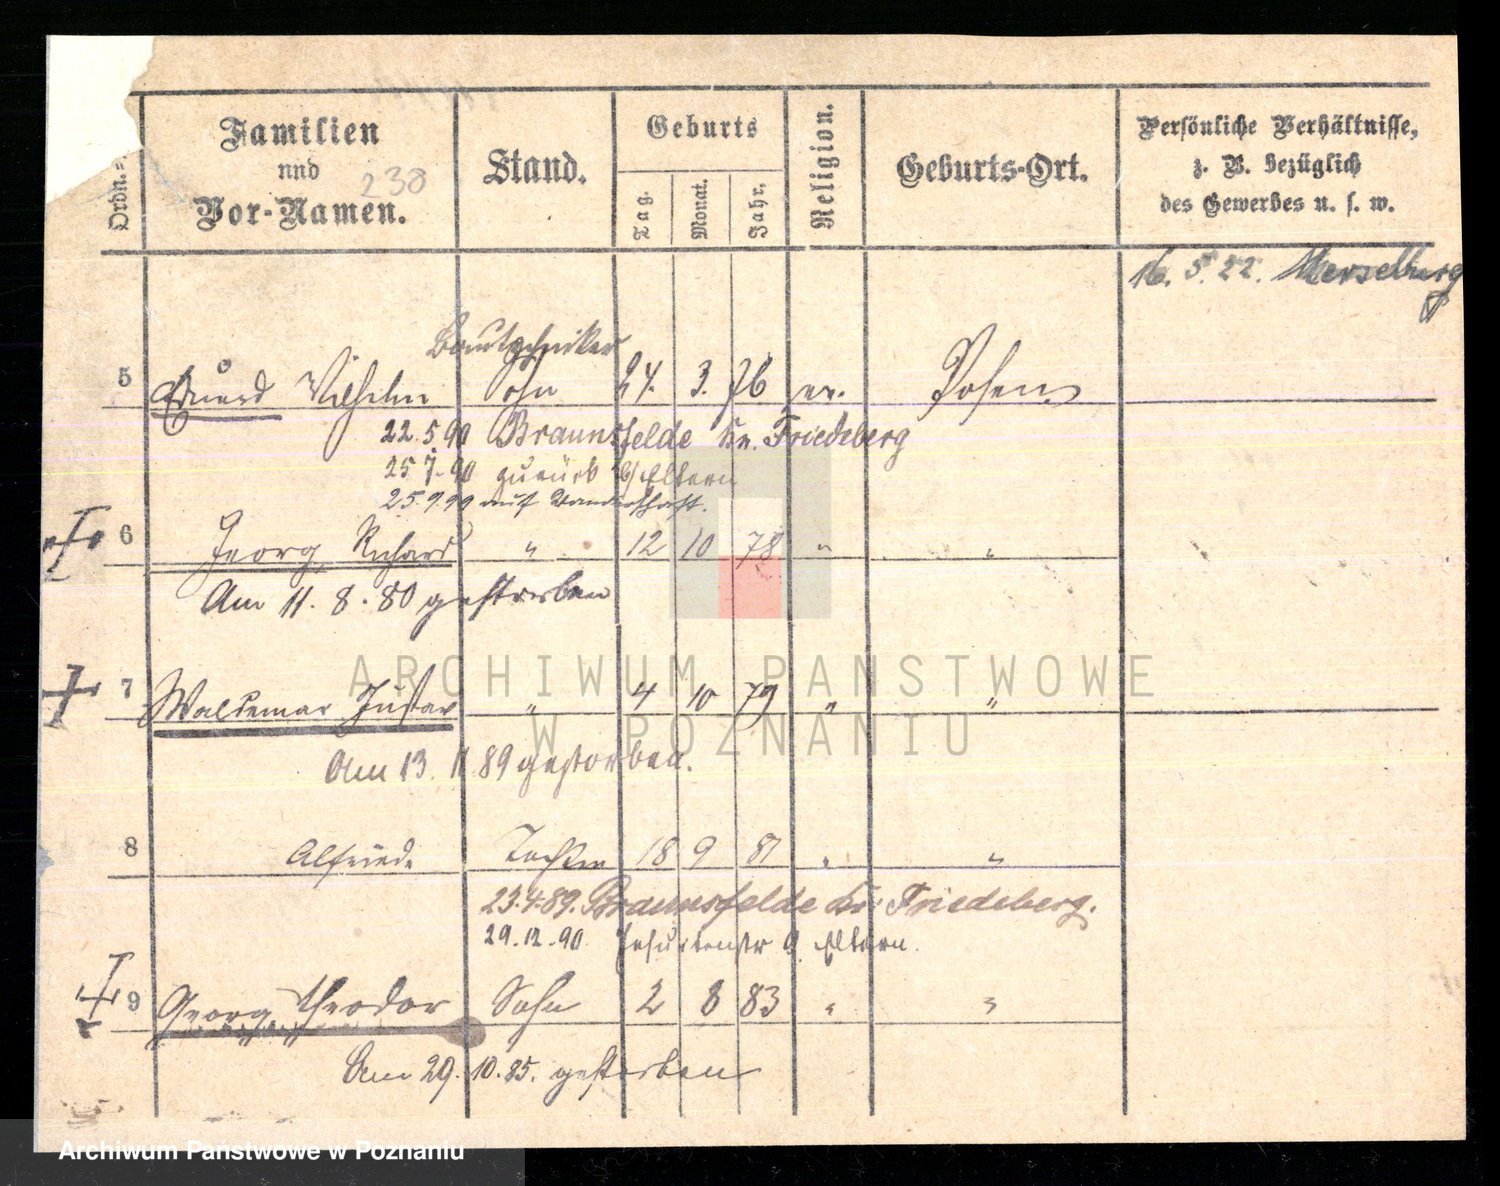 Ordn.=
Familien
und
Vor-Namen.
238
Stand.
Geburts
Tag.
Monat.
Jahr.
Religion.
Geburts-Ort.
Persönliche Verhältnisse,
z. B. bezüglich
des Gewerbes u. s. w.
16. 5. 22. Merseburg
Bautechniker
5 Eduard Wilhelm Sohn 24. 3. 76 ev. Posen
22.5.90 Braunsfelde Kr. Friedeberg
25 7. 90 zurück Eltern
25.9.99 auf Wanderschaft.
6 Georg Richard " 12 10 78 " "
Am 11. 8. 80 gestorben
7 Waldemar Gustav " 4 10 79 " "
Am 13. 11 89 gestorben.
8 Alfriede Tochter 18 9 81 " "
23.4.89. Braunsfelde Kr. Friedeberg.
29.12.90 Eltern.
9 Georg Theodor Sohn 2 8 83 " "
Am 29. 10. 85. gestorben
ARCHIWUM PAŃSTWOWE
W POZNANIU
Archiwum Państwowe w Poznaniu